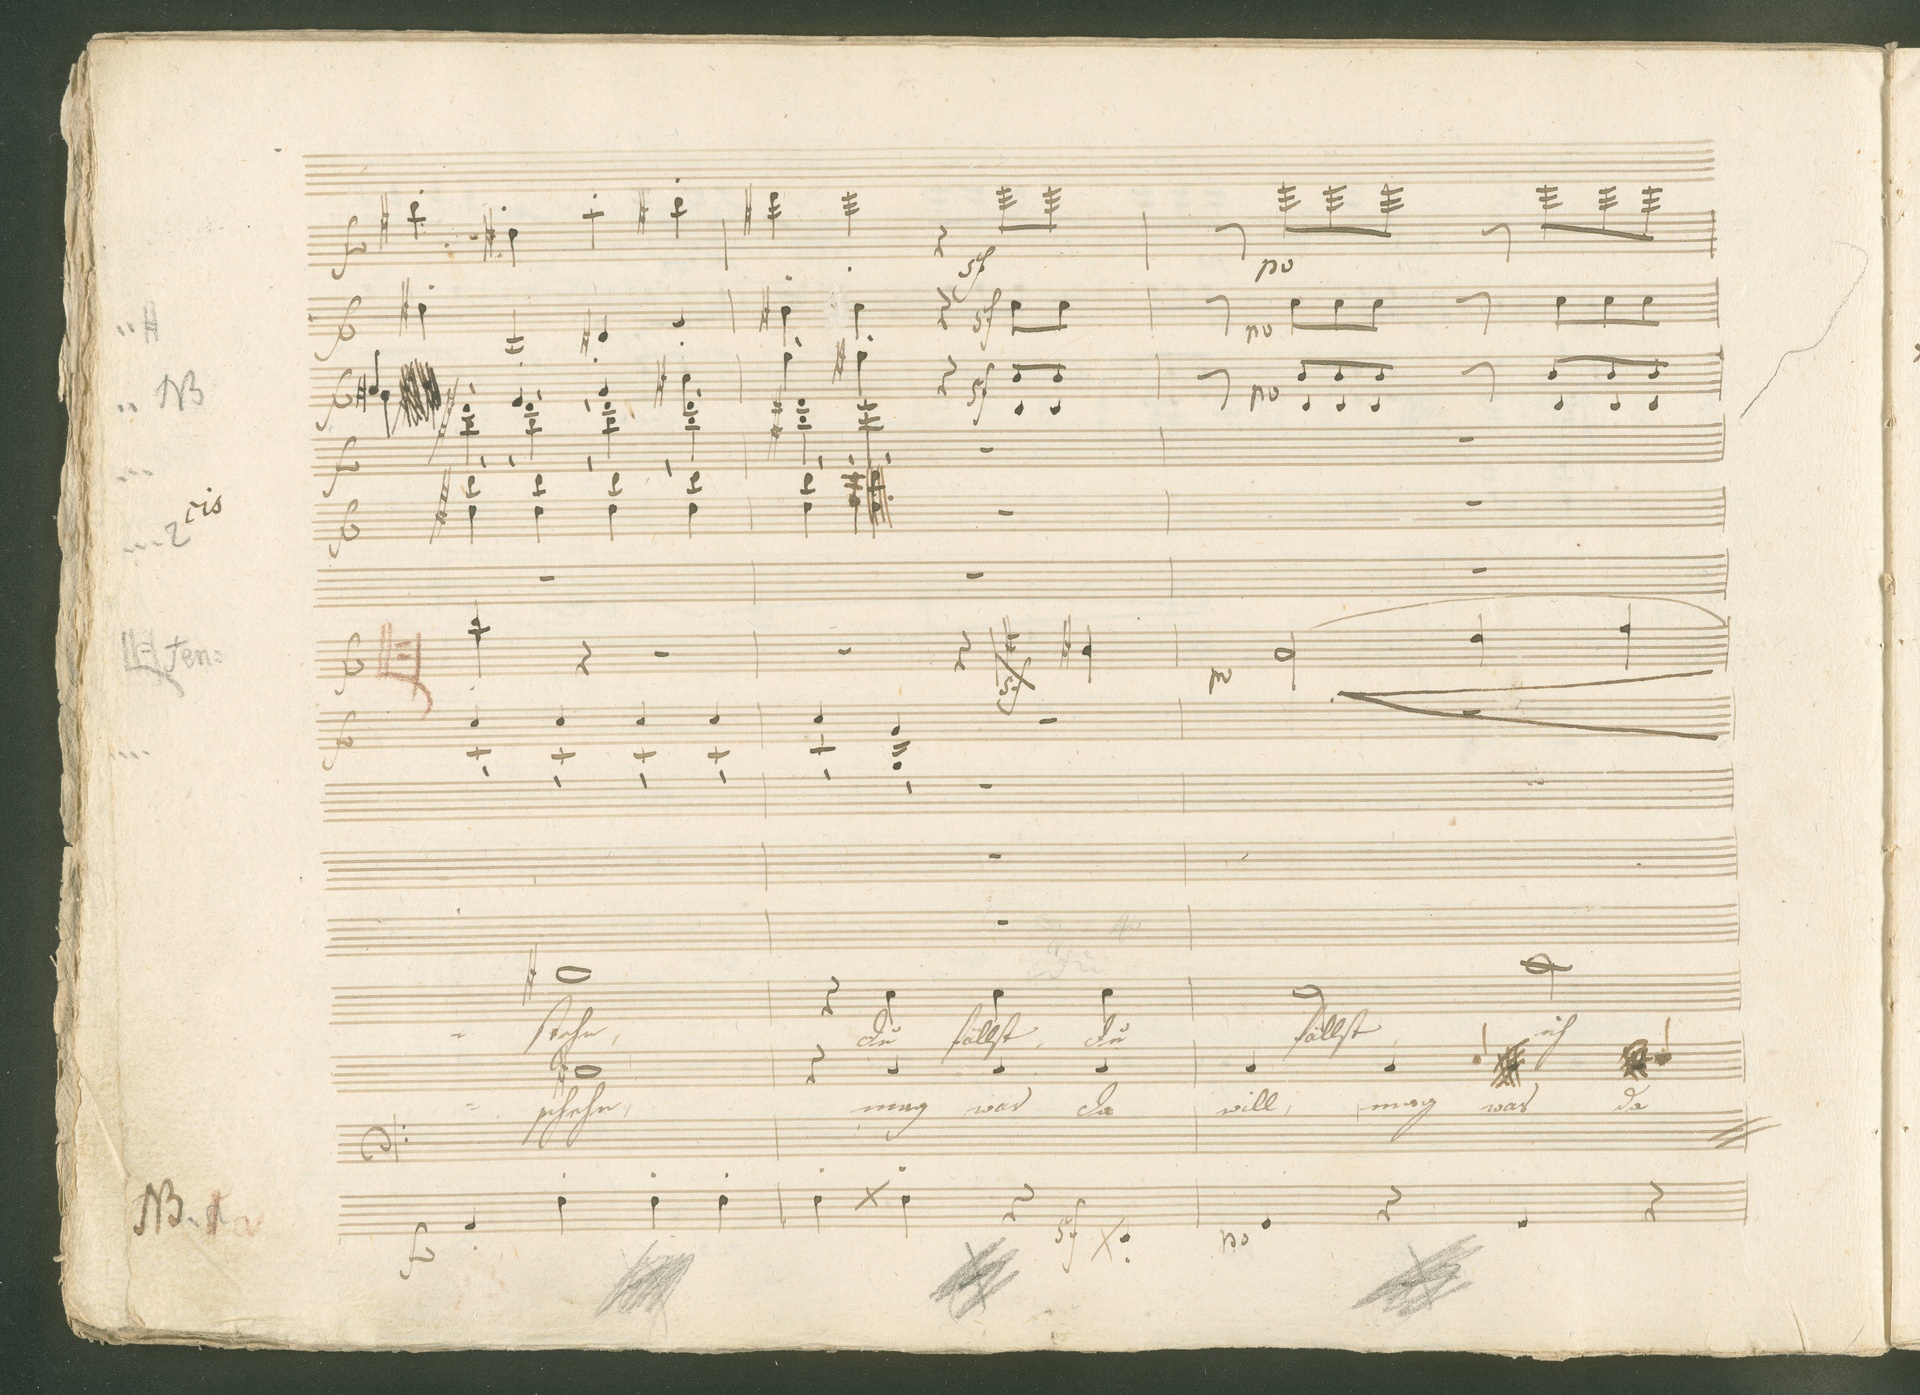 f
sf po
f sf po
NB f sf po
f
cis
f
ten: f sf p
f
- stehn, du fällst, du fällst, ich
- schehn, mag was da will, mag was da
NB.
f sf po